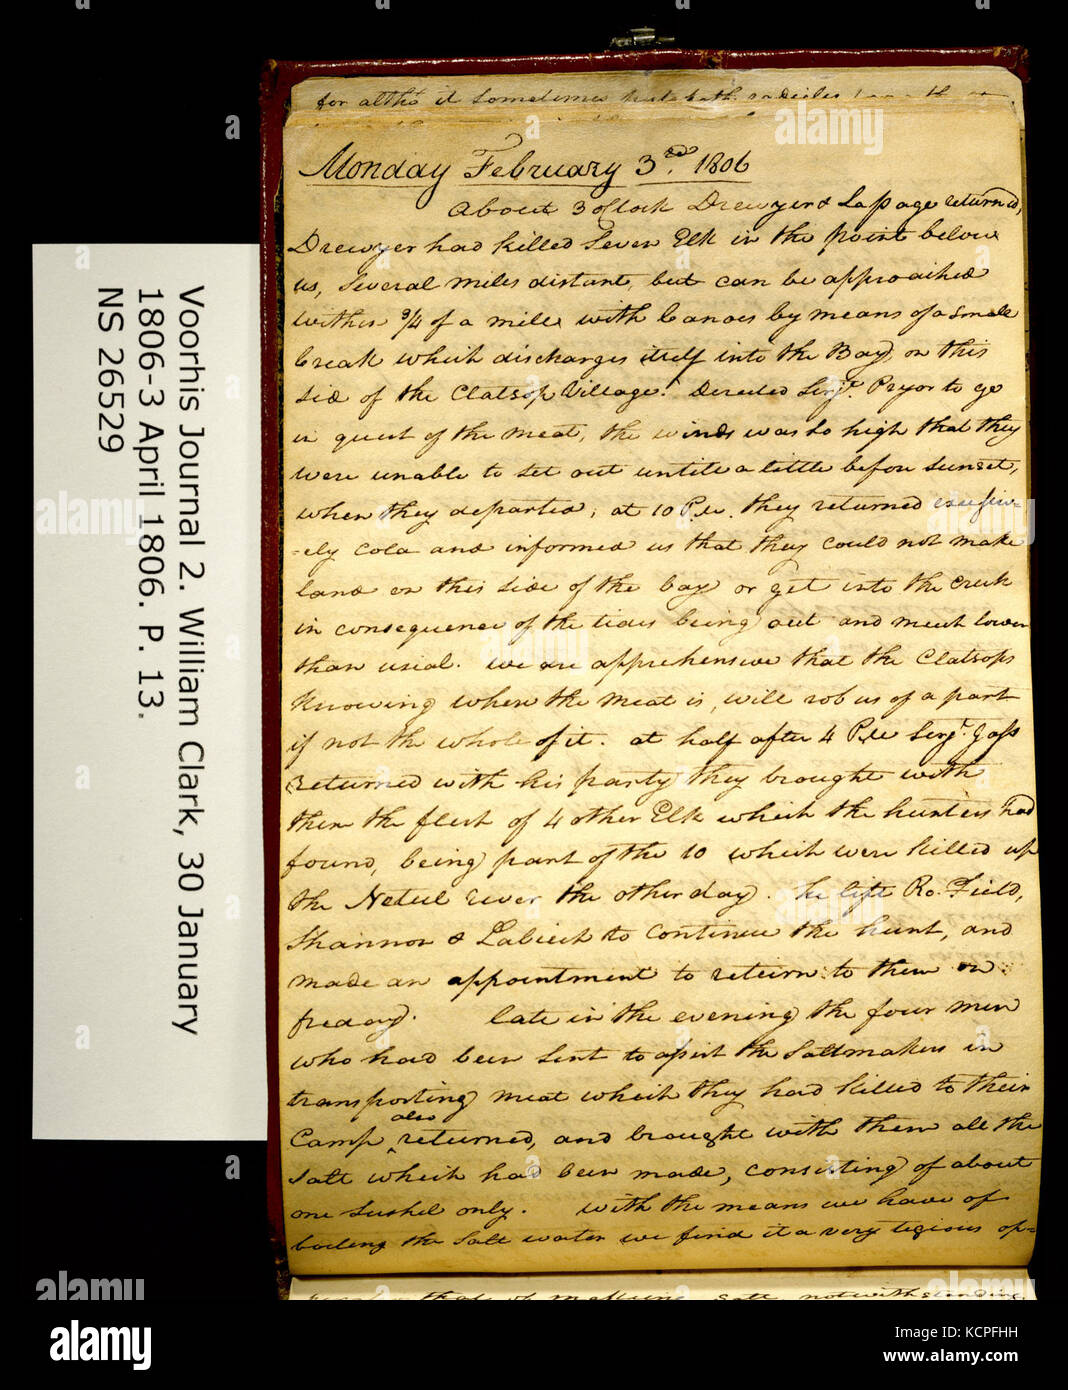 for altho it sometimes
Monday February 3rd. 1806
About 3 oClock Drewyer & Lapage returned,
Drewyer had killed Seven Elk in the point below
us, Several miles distant, but can be approached
within 3/4 of a mile with Canoes by means of a Small
Creak which discharges itself into the Bay, on this
Side of the Clatsop Village. derected Serjt. Pryor to go
in quest of the meat, the winds was So high that they
were unable to Set out untill a little before Sunset,
when they departed; at 10 P.M. they returned excessiv-
-ely cold and informed us that they could not make
land on this Side of the bay or get into the Creek
in consequence of the tides being out and much lower
than usial. we are apprehensive that the Clatsops
Knowing where the meat is, will rob us of a part
if not the whole of it. at half after 4 P.M Sergt. Gass
returned with his party they brought with
them the flesh of 4 other Elk which the hunters had
found, being part of the 10 which were killed up
the Netul river the other day. he left Ro. Field,
Shannon & Labiech to Continue the hunt, and
made an appointment to return to them on
friday. late in the evening the four men
who had been Sent to assist the Saltmakers in
transporting meat which they had killed to their
also
Camp ^ returned, and brought with them all the
Salt which had been made, consisting of about
one bushel only. with the means we have of
boiling the Salt water we find it a very tigious op=
that of makeing Salt, notwithstanding
Voorhis Journal 2. William Clark, 30 January
1806-3 April 1806. P. 13.
NS 26529
alamy
alamy
alamy
alamy
alamy
alamy
alamy
alamy
alamy
a
a
a
a
a
a
a
alamy
Image ID: KCPFHH
www.alamy.com